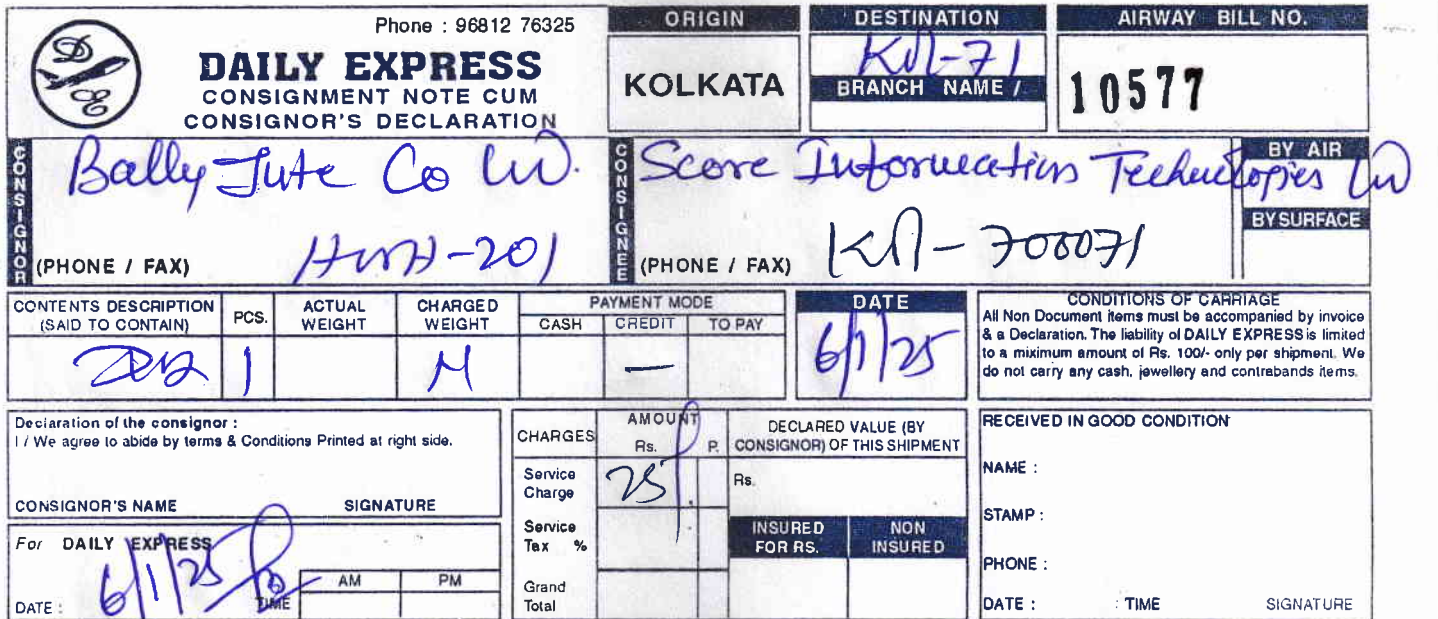 Phone : 96812 76325
DAILY EXPRESS
CONSIGNMENT NOTE CUM
CONSIGNOR'S DECLARATION
D E
ORIGIN
KOLKATA
DESTINATION
Kol-71
BRANCH NAME /
AIRWAY BILL NO.
10577
CONSIGNOR
Bally Jute Co Ltd.
(PHONE / FAX)
CONSIGNEE
Score Information Technologies Ltd
Kol-700071
(PHONE / FAX)
BY AIR
BY SURFACE
CONTENTS DESCRIPTION
(SAID TO CONTAIN)
PCS.
1
ACTUAL
WEIGHT
CHARGED
WEIGHT
M
PAYMENT MODE
CASH CREDIT TO PAY
—
DATE
6/1/25
CONDITIONS OF CARRIAGE
All Non Document items must be accompanied by invoice
& a Declaration. The liability of DAILY EXPRESS is limited
to a miximum amount of Rs. 100/- only per shipment. We
do not carry any cash, jewellery and contrabands items.
Declaration of the consignor :
I / We agree to abide by terms & Conditions Printed at right side.
CONSIGNOR'S NAME SIGNATURE
For DAILY EXPRESS
6/1/25
DATE : TIME
AM PM
CHARGES
AMOUNT
Rs. P.
Service
Charge
25/
Service
Tax %
Grand
Total
DECLARED VALUE (BY
CONSIGNOR) OF THIS SHIPMENT
Rs.
INSURED
FOR RS.
NON
INSURED
RECEIVED IN GOOD CONDITION
NAME :
STAMP :
PHONE :
DATE : : TIME SIGNATURE